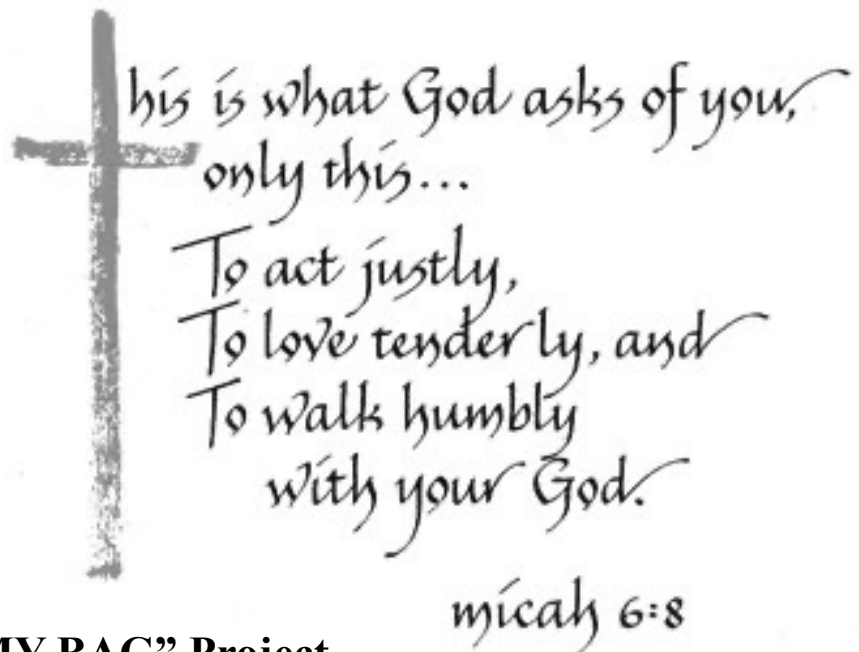 This is what God asks of you,
only this...
To act justly,
To love tenderly, and
To walk humbly
with your God.
micah 6:8
MY BAG” Project